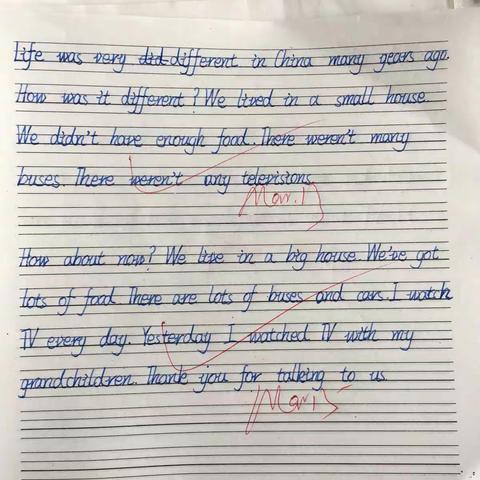 Life was very did different in China many years ago.
How was it different? We lived in a small house.
We didn't have enough food. There weren't many
buses. There weren't any televisions.
Mar.1
How about now? We live in a big house. We've got
lots of food. There are lots of buses and cars. I watch
TV every day. Yesterday I watched TV with my
grandchildren. Thank you for talking to us.